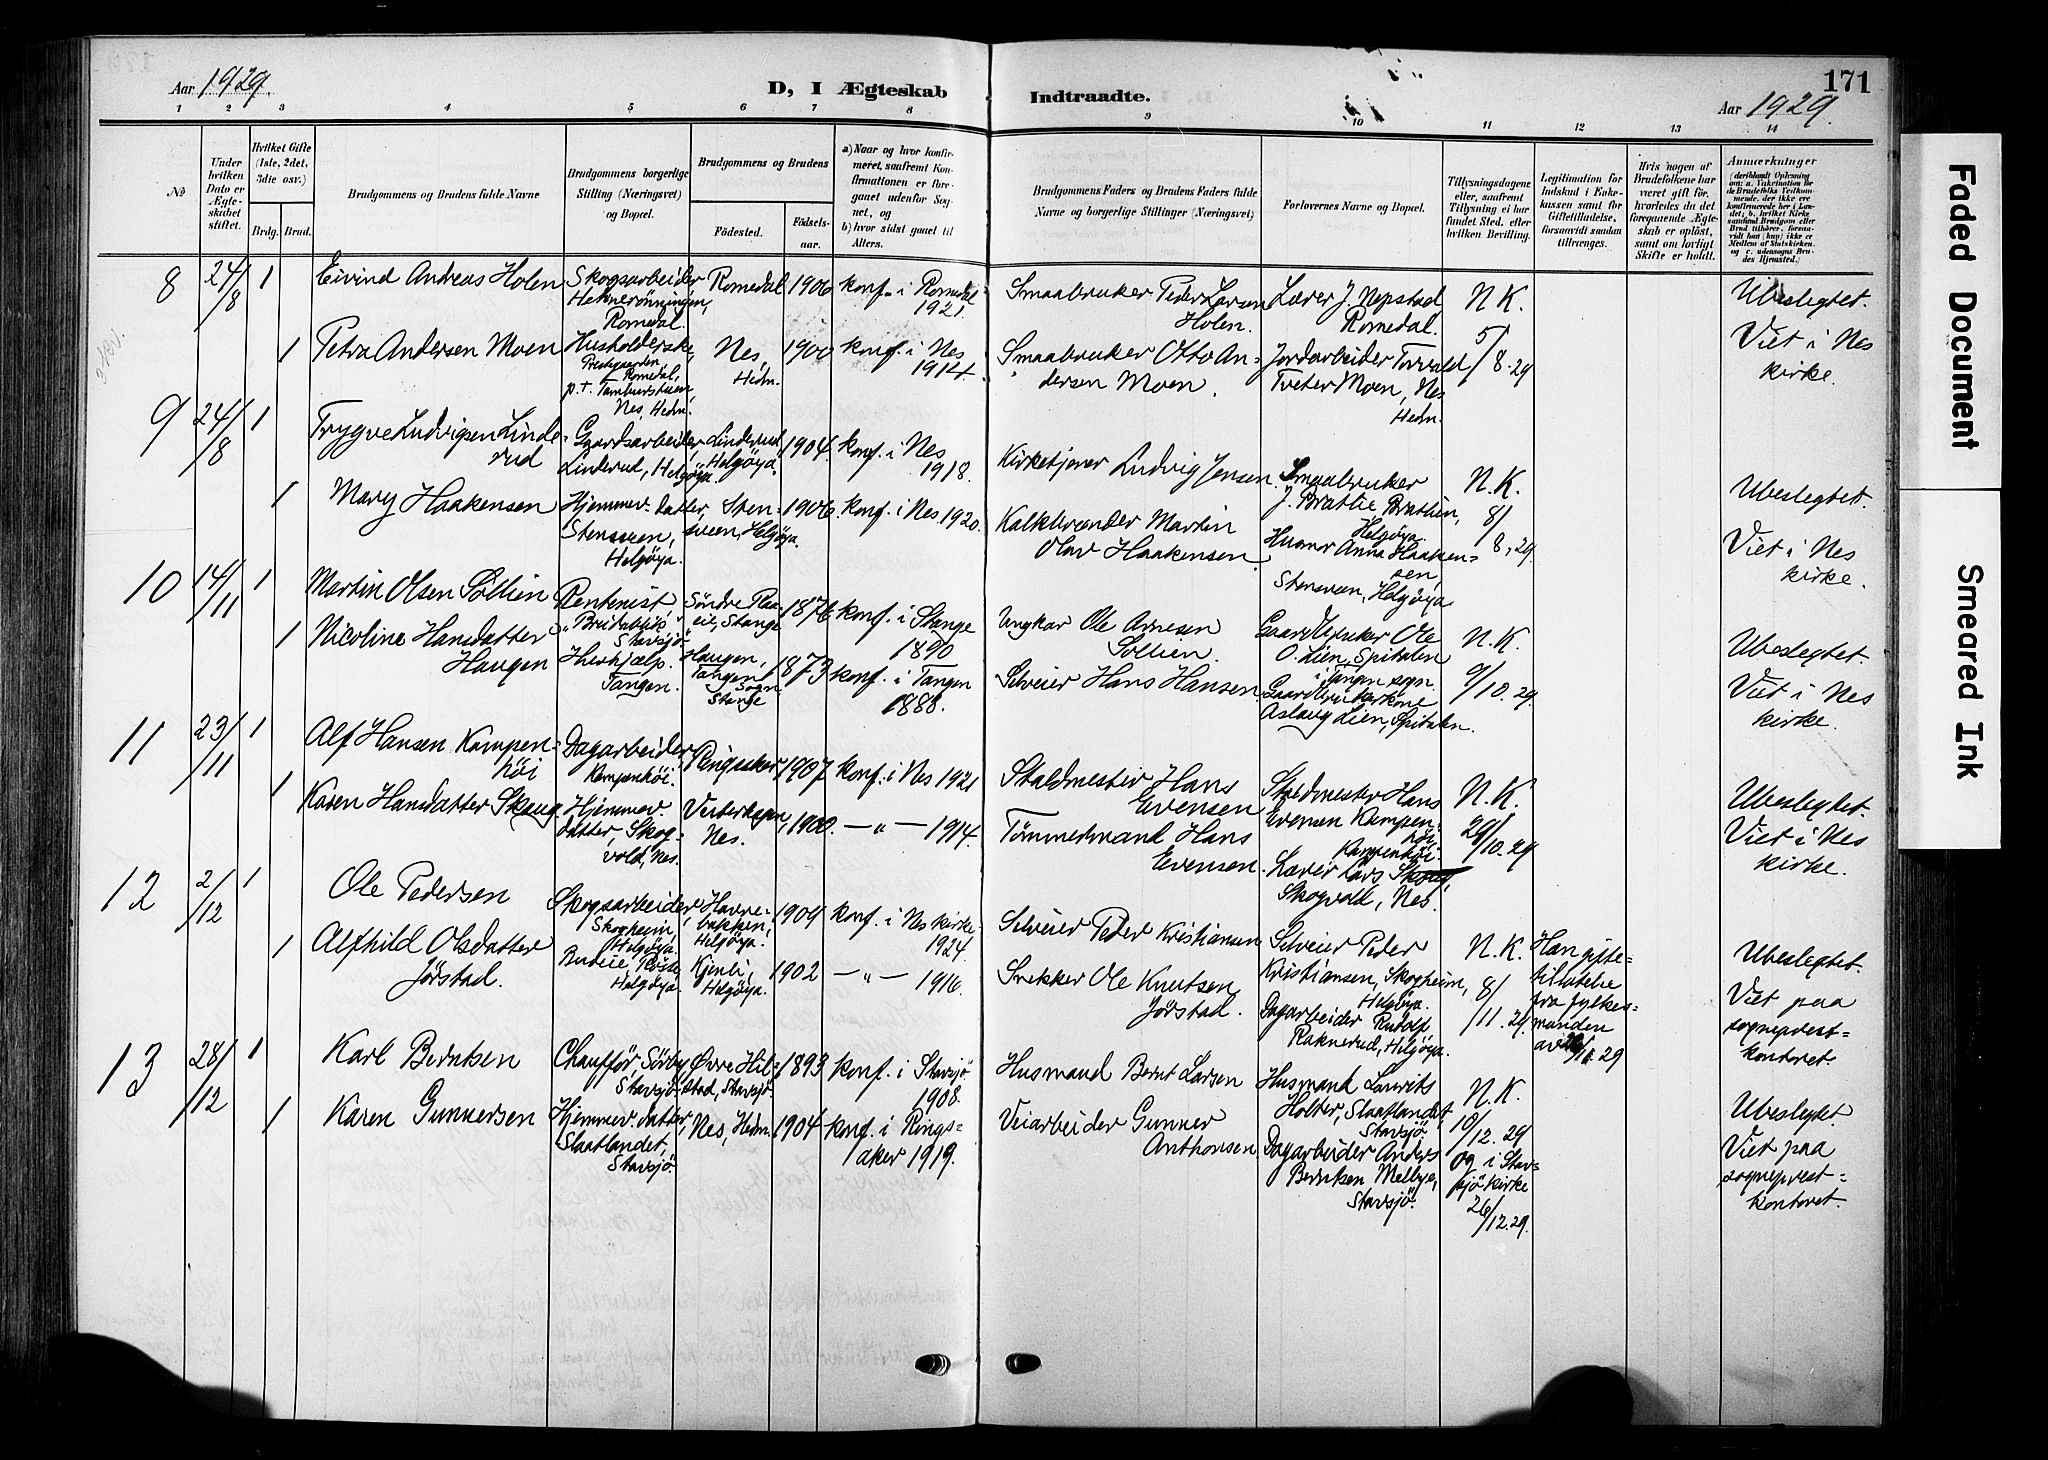 Aar 1929.
D, I Ægteskab
Indtraadte.
171
Aar 1929.
1 2 3 4 5 6 7 8 9 10 11 12 13 14
No
Under hvilken Dato er Ægteskabet stiftet.
Hvilket Gifte (1ste, 2det, 3die osv.)
Brdg. Brud.
Brudgommens og Brudens fulde Navne
Brudgommens borgerlige Stilling (Næringsvei) og Bopæl.
Brudgommens og Brudens
Fødested.
Fødselsaar.
a) Naar og hvor konfirmeret, saafremt Konfirmationen er foregaaet udenfor Sognet, og
b) hvor sidst gaaet til Alters.
Brudgommens Faders og Brudens Faders fulde Navne og borgerlige Stillinger (Næringsvei)
Forlovernes Navne og Bopæl.
Tillysningsdagene eller, saafremt Tillysning ei har fundet Sted, efter hvilken Bevilling.
Legitimation for Indskud i Enkekassen samt for Giftetilladelse, forsaavidt saadan tiltrænges.
Hvis nogen af Brudefolkene har været gift før, hvorledes da det foregaaende Ægteskab er opløst, samt om lovligt Skifte er holdt.
Anmærkninger (deriblandt Oplysning om: a. Vakcination for de Brudefolks Vedkommende, der ikke ere konfirmerede her i Landet; b. hvilket Kirkesamfund Brudgom eller Brud tilhører, forsaavidt han (hun) ikke er Medlem af Statskirken, og c. udensogns Brudes Hjemsted.)
8 24/8 1 Eivind Andreas Holen
Skogsarbeider
Romedal.
Romedal 1906 konf. i Romedal 1921.
Smaabruker Peder Larsen Holen.
Lærer J. Nepstad Romedal.
N.K. 5/8.29
Ubeslegtet.
Viet i Nes kirke.
1 Petra Andersen Moen
Husholderske
Prestgaarden Romedal,
p.t.
Nes, Hedm.
Nes, Hedm. 1900 konf. i Nes 1914.
Smaabruker Otto Andersen Moen.
Jordarbeider Torvald Tveter Moen, Nes Hedm.
9 24/8 1 Trygve Ludvigsen Linderud
Gaardsarbeider, Linderud, Helgøya.
Linderud, Helgøya. 1904. konf. i Nes 1918.
Kirketjener Ludvig Jensen.
Smaabruker J. Brattlie, Bratlien, Helgøya.
N.K. 8/8.29
Ubeslegtet.
Viet i Nes kirke.
1 Mary Haakensen
Hjemmev. datter, Stensveen, Helgøya.
Stensveen, Helgøya. 1906. konf. i Nes 1920.
Kalkbrænder Martin Olav Haakensen.
Husmor Anna Haakensen, Stensveen, Helgøya
10 14/11 1 Martin Olsen Sollien
Rentenist
Stavsjø
Søndre Stange 1876 konf. i Stange 1890
Ungkar Ole Arnesen Sollien.
Gaardbruker Ole O. Lien, Spitalen i Tangen sogn.
N.K. 9/10.29.
Ubeslegtet.
Viet i Nes kirke.
1 Nicoline Hansdatter Haugen
Hushjælp. Tangen.
Haugen, Tangen Sogn Stange 1873 konf. i Tangen 1888.
Selveier Hans Hansen.
Gaardbrukerkone Aslaug Lien, Spitalen.
11 23/11 1 Alf Hansen Kampenhøi
Dagarbeider, Kampenhøi.
Ringsaker 1907 konf. i Nes 1921
Staldmester Hans Evensen
Staldmester Hans Evensen Kampenhøi Kampenhøi.
N.K. 29/10.29
Ubeslegtet.
Viet i Nes kirke.
1 Karen Hansdatter Skaug
Hjemmev. datter, Skogvold, Nes.
Nes. 1900. — „ — 1914.
Tømmermand Hans Evensen.
Lærer Lars Skaug, Skogvold, Nes.
12 2/12 1 Ole Pedersen
Skogsarbeider Skogheim, Helgøya
Havrebakken, Helgøya. 1909 konf. i Nes kirke 1924.
Selveier Peder Kristiansen
Selveier Peder Kristiansen, Skogheim, Helgøya.
N.K. 8/11.29.
Han giftetilladelse fra fylkesmanden av 29
Ubeslegtet.
Viet paa sogneprestkontoret.
1 Alfhild Olsdatter Jørstad.
Budeie Helgøya.
Kjenli, Helgøya. 1902 — „ — 1916.
Snekker Ole Knutsen Jørstad.
Dagarbeider Rudolf Raknerud, Helgøya.
13 28/12 1 Karl Berntsen
Chauffør, Sørby Stavsjø.
Øvre Hilstad, Stavsjø. 1893 konf. i Stavsjø 1908.
Husmand Bernt Larsen
Husmand Laurits Holter, Slaatlandet, Stavsjø.
N.K. 10/12.29 og i Stavsjø kirke 26/12.29.
Ubeslegtet.
Viet paa sogneprestkontoret.
1 Karen Gunnersen
Hjemmev. datter, Slaatlandet, Stavsjø
Nes, Hedm. 1904 konf. i Ringsaker 1919.
Veiarbeider Gunner Anthonsen
Dagarbeider Anders Berntsen Melbye, Stavsjø.
Faded Document
Smeared Ink